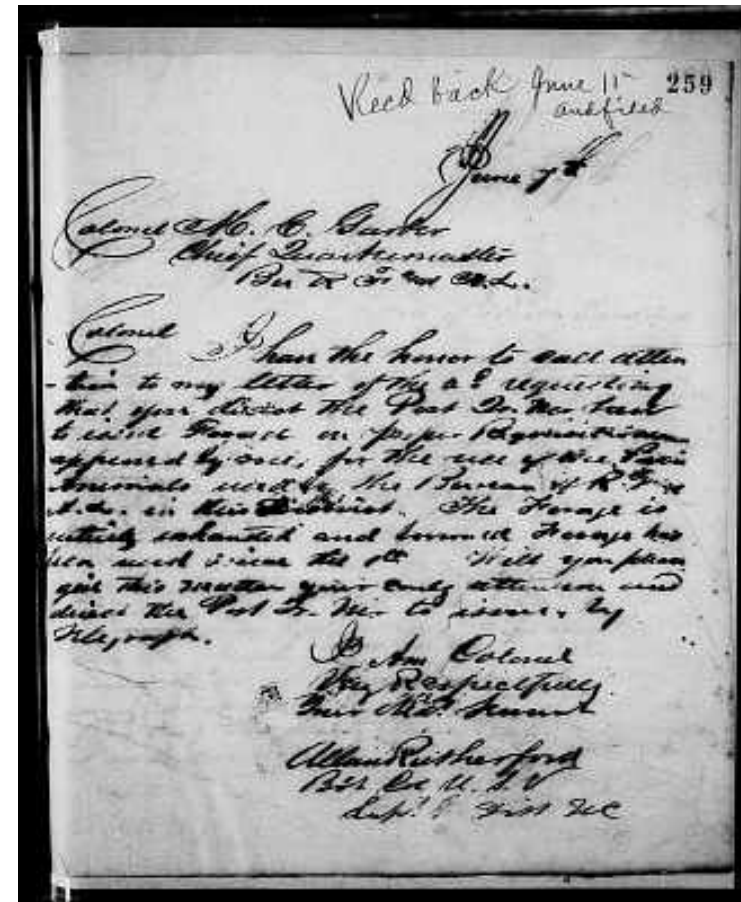 Recd back June 11 259
and filed
June 7th
Colonel M. C.
Chief Quartermaster
Bu R F and A.L.
Colonel
I have the honor to call atten
-tion to my letter of the requesting
that you direct the Post Qr. Mr. here
to issue Forage on proper Requisitions
approved by me, for the use of the
animals used by the Bureau of R. F. and
A.L. in this District. The Forage is
entirely exhausted and borrowed Forage has
been used since the Will you please
give this matter your early attention and
direct the Post Qr. Mr. to issue, by
Telegraph.
I Am Colonel
Very Respectfully
Your Obt. Servant
Allan Rutherford
Bvt Col U.S.V
Supt. Dist NC